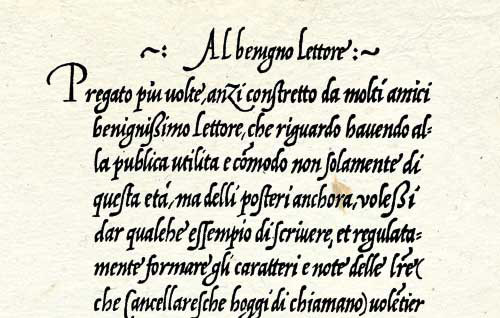 ~: Al benigno lettore :~
Pregato piu uolte, anzi constretto da molti amici
benignißimo lettore, che riguardo hauendo al-
la publica utilita e cõmodo non solamente di
questa etá, ma delli posteri anchora, uoleßi
dar qualche essempio di scriuere, et regulata-
mente formare gli caratteri e note delle lr̃e
che (ancellaresche hoggi di chiamano) uolētier